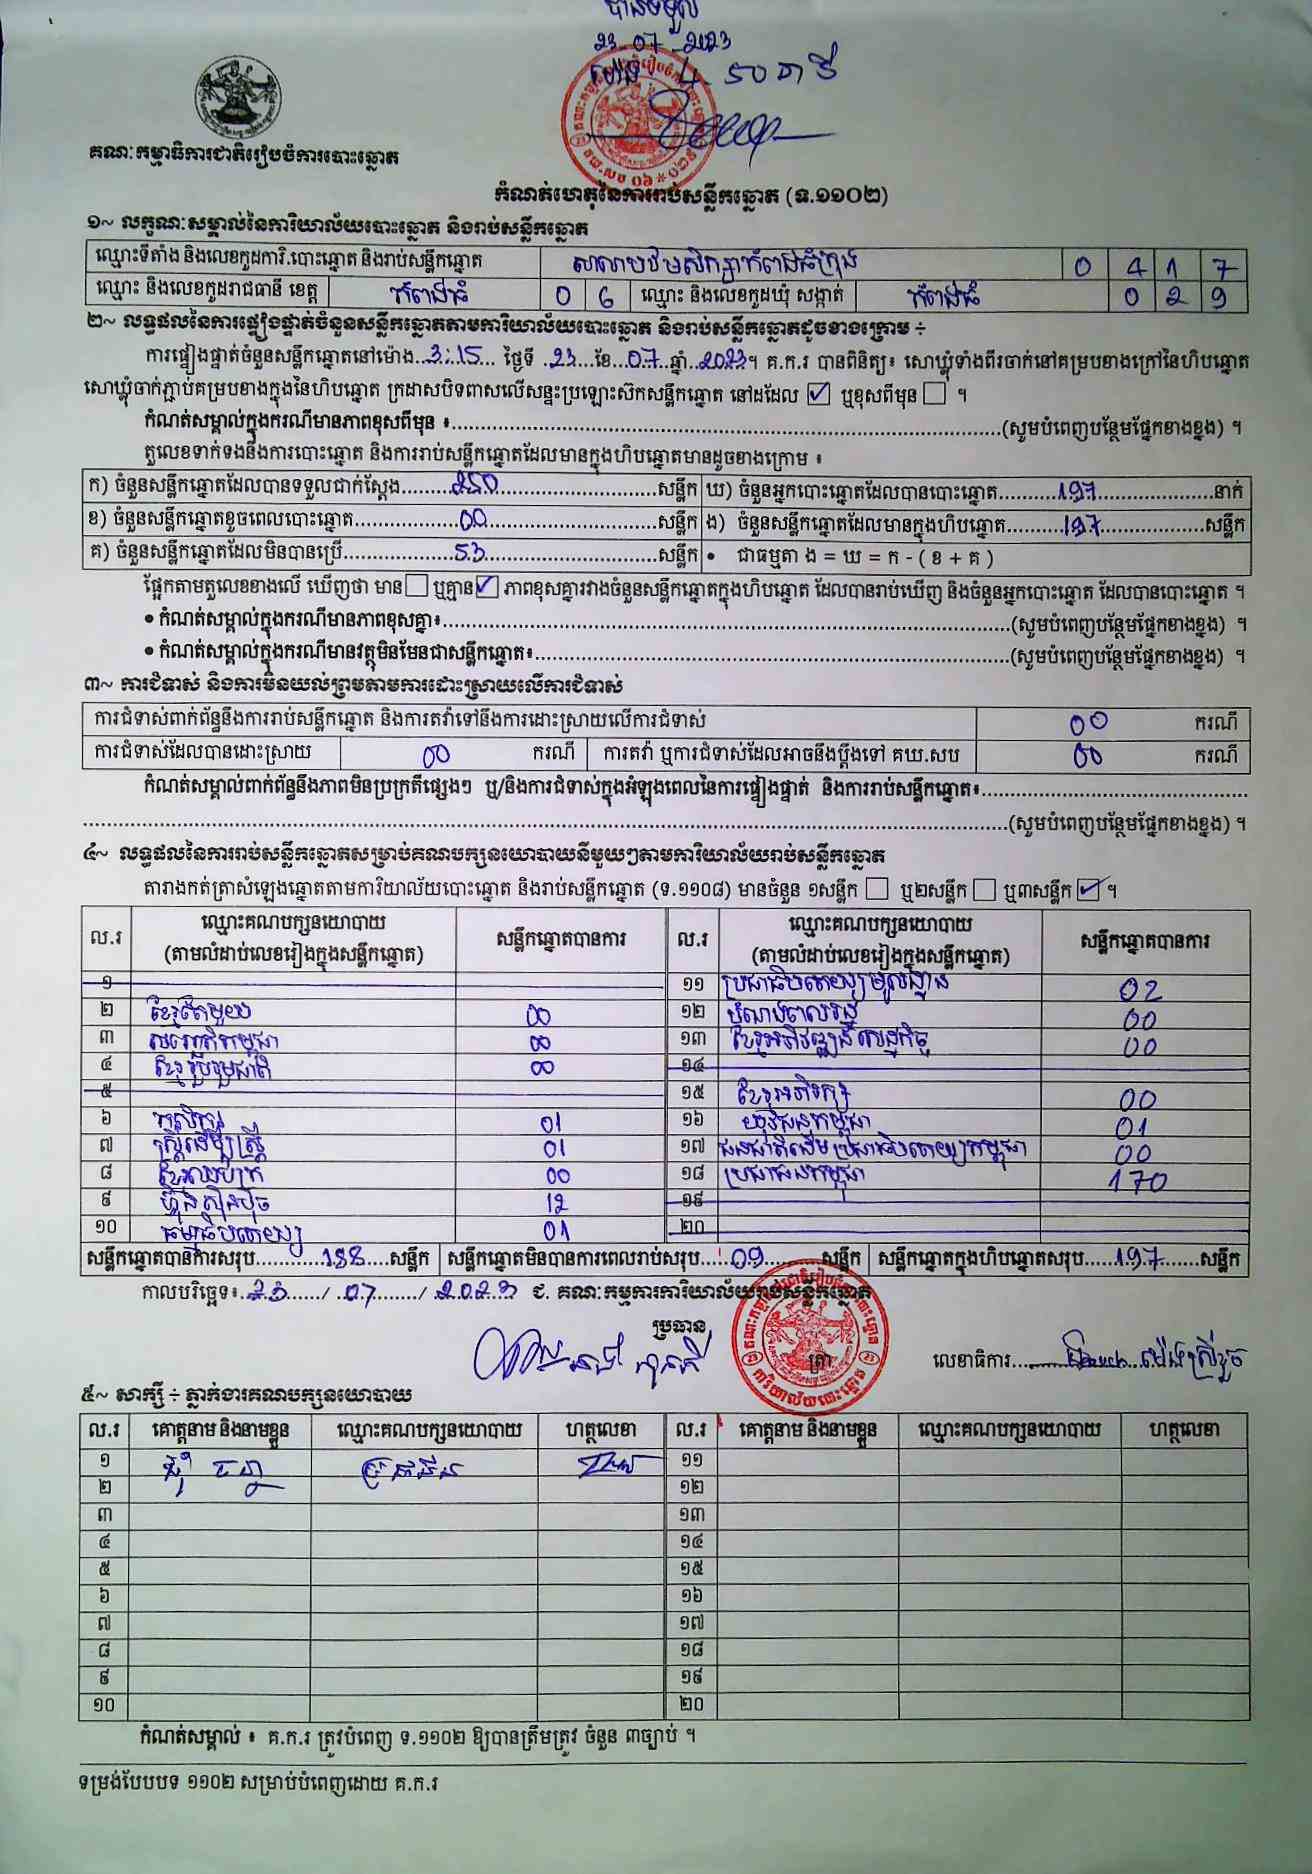 បានទទួល
23.07.2023
ម៉ោង 4 50 នាទី
គណៈកម្មាធិការជាតិរៀបចំការបោះឆ្នោត
កំណត់ហេតុនៃការរាប់សន្លឹកឆ្នោត (ទ.១១០២)
១~ លក្ខណៈសម្គាល់នៃការិយាល័យបោះឆ្នោត និងរាប់សន្លឹកឆ្នោត
ឈ្មោះទីតាំង និងលេខកូដការិ.បោះឆ្នោត និងរាប់សន្លឹកឆ្នោត សាលាបឋមសិក្សាកំពង់ធំក្រុង 0 4 1 7
ឈ្មោះ និងលេខកូដរាជធានី ខេត្ត កំពង់ធំ 0 6 ឈ្មោះ និងលេខកូដឃុំ សង្កាត់ កំពង់ធំ 0 2 9
២~ លទ្ធផលនៃការផ្ទៀងផ្ទាត់ចំនួនសន្លឹកឆ្នោតតាមការិយាល័យបោះឆ្នោត និងរាប់សន្លឹកឆ្នោតដូចខាងក្រោម ÷
ការផ្ទៀងផ្ទាត់ចំនួនសន្លឹកឆ្នោតនៅម៉ោង...3:15... ថ្ងៃទី .23...ខែ...07...ឆ្នាំ..2023។ គ.ក.រ បានពិនិត្យ៖ សោឃ្លុំទាំងពីរចាក់នៅគម្របខាងក្រៅនៃហិបឆ្នោត
សោឃ្លុំចាក់ភ្ជាប់គម្របខាងក្នុងនៃហិបឆ្នោត ក្រដាសបិទពាសលើសន្ទះប្រឡោះស៊កសន្លឹកឆ្នោត នៅដដែល ☑ ឬខុសពីមុន ☐ ។
កំណត់សម្គាល់ក្នុងករណីមានភាពខុសពីមុន ៖...(សូមបំពេញបន្ថែមផ្នែកខាងខ្នង) ។
តួលេខទាក់ទងនឹងការបោះឆ្នោត និងការរាប់សន្លឹកឆ្នោតដែលមានក្នុងហិបឆ្នោតមានដូចខាងក្រោម ៖
ក) ចំនួនសន្លឹកឆ្នោតដែលបានទទួលជាក់ស្តែង...250...សន្លឹក ឃ) ចំនួនអ្នកបោះឆ្នោតដែលបានបោះឆ្នោត...197...នាក់
ខ) ចំនួនសន្លឹកឆ្នោតខូចពេលបោះឆ្នោត...00...សន្លឹក ង) ចំនួនសន្លឹកឆ្នោតដែលមានក្នុងហិបឆ្នោត...197...សន្លឹក
គ) ចំនួនសន្លឹកឆ្នោតដែលមិនបានប្រើ...53...សន្លឹក • ជាធម្មតា ង = ឃ = ក - ( ខ + គ )
ផ្អែកតាមតួលេខខាងលើ ឃើញថា មាន ☐ ឬគ្មាន ☑ ភាពខុសគ្នារវាងចំនួនសន្លឹកឆ្នោតក្នុងហិបឆ្នោត ដែលបានរាប់ឃើញ និងចំនួនអ្នកបោះឆ្នោត ដែលបានបោះឆ្នោត ។
• កំណត់សម្គាល់ក្នុងករណីមានភាពខុសគ្នា៖...(សូមបំពេញបន្ថែមផ្នែកខាងខ្នង) ។
• កំណត់សម្គាល់ក្នុងករណីមានវត្ថុមិនមែនជាសន្លឹកឆ្នោត៖...(សូមបំពេញបន្ថែមផ្នែកខាងខ្នង) ។
៣~ ការជំទាស់ និងការមិនយល់ព្រមតាមការដោះស្រាយលើការជំទាស់
ការជំទាស់ពាក់ព័ន្ធនឹងការរាប់សន្លឹកឆ្នោត និងការតវ៉ាទៅនឹងការដោះស្រាយលើការជំទាស់ 00 ករណី
ការជំទាស់ដែលបានដោះស្រាយ 00 ករណី ការតវ៉ា ឬការជំទាស់ដែលអាចនឹងប្តឹងទៅ គឃ.សប 00 ករណី
កំណត់សម្គាល់ពាក់ព័ន្ធនឹងភាពមិនប្រក្រតីផ្សេងៗ ឬ/និងការជំទាស់ក្នុងអំឡុងពេលនៃការផ្ទៀងផ្ទាត់ និងការរាប់សន្លឹកឆ្នោត៖...
...(សូមបំពេញបន្ថែមផ្នែកខាងខ្នង) ។
៤~ លទ្ធផលនៃការរាប់សន្លឹកឆ្នោតសម្រាប់គណបក្សនយោបាយនីមួយៗតាមការិយាល័យរាប់សន្លឹកឆ្នោត
តារាងកត់ត្រាសំឡេងឆ្នោតតាមការិយាល័យបោះឆ្នោត និងរាប់សន្លឹកឆ្នោត (ទ.១១០៨) មានចំនួន ១សន្លឹក ☐ ឬ២សន្លឹក ☐ ឬ៣សន្លឹក ☑ ។
ល.រ ឈ្មោះគណបក្សនយោបាយ (តាមលំដាប់លេខរៀងក្នុងសន្លឹកឆ្នោត) សន្លឹកឆ្នោតបានការ ល.រ ឈ្មោះគណបក្សនយោបាយ (តាមលំដាប់លេខរៀងក្នុងសន្លឹកឆ្នោត) សន្លឹកឆ្នោតបានការ
១ ១១ ប្រជាធិបតេយ្យមូលដ្ឋាន 02
២ ខ្មែរតែមួយ 00 ១២ បំណងពលរដ្ឋ 00
៣ សន្តិភាពកម្ពុជា 00 ១៣ ខ្មែរអភិវឌ្ឍន៍សេដ្ឋកិច្ច 00
៤ ខ្មែររួបរួមជាតិ 00 ១៤
៥ ១៥ ខ្មែរអភិរក្ស 00
៦ កសិករ 01 ១៦ យុវជនកម្ពុជា 01
៧ ស្ត្រីដើម្បីស្ត្រី 01 ១៧ ជនជាតិដើមប្រជាធិបតេយ្យកម្ពុជា 00
៨ ខ្មែរឈប់ក្រ 00 ១៨ ប្រជាជនកម្ពុជា 170
៩ ហ៊្វុនស៊ិនប៉ិច 12 ១៩
១០ ធម្មាធិបតេយ្យ 01 ២០
សន្លឹកឆ្នោតបានការសរុប...188...សន្លឹក សន្លឹកឆ្នោតមិនបានការពេលរាប់សរុប...09...សន្លឹក សន្លឹកឆ្នោតក្នុងហិបឆ្នោតសរុប...197...សន្លឹក
កាលបរិច្ឆេទ៖.23.../.07.../2023 ជ. គណៈកម្មការការិយាល័យរាប់សន្លឹកឆ្នោត
ប្រធាន
ត្រា
លេខាធិការ
៥~ សាក្សី ÷ ភ្នាក់ងារគណបក្សនយោបាយ
ល.រ គោត្តនាម និងនាមខ្លួន ឈ្មោះគណបក្សនយោបាយ ហត្ថលេខា ល.រ គោត្តនាម និងនាមខ្លួន ឈ្មោះគណបក្សនយោបាយ ហត្ថលេខា
១ ប្រជាជន ១១
២ ១២
៣ ១៣
៤ ១៤
៥ ១៥
៦ ១៦
៧ ១៧
៨ ១៨
៩ ១៩
១០ ២០
កំណត់សម្គាល់ ៖ គ.ក.រ ត្រូវបំពេញ ទ.១១០២ ឱ្យបានត្រឹមត្រូវ ចំនួន ៣ច្បាប់ ។
ទម្រង់បែបបទ ១១០២ សម្រាប់បំពេញដោយ គ.ក.រ